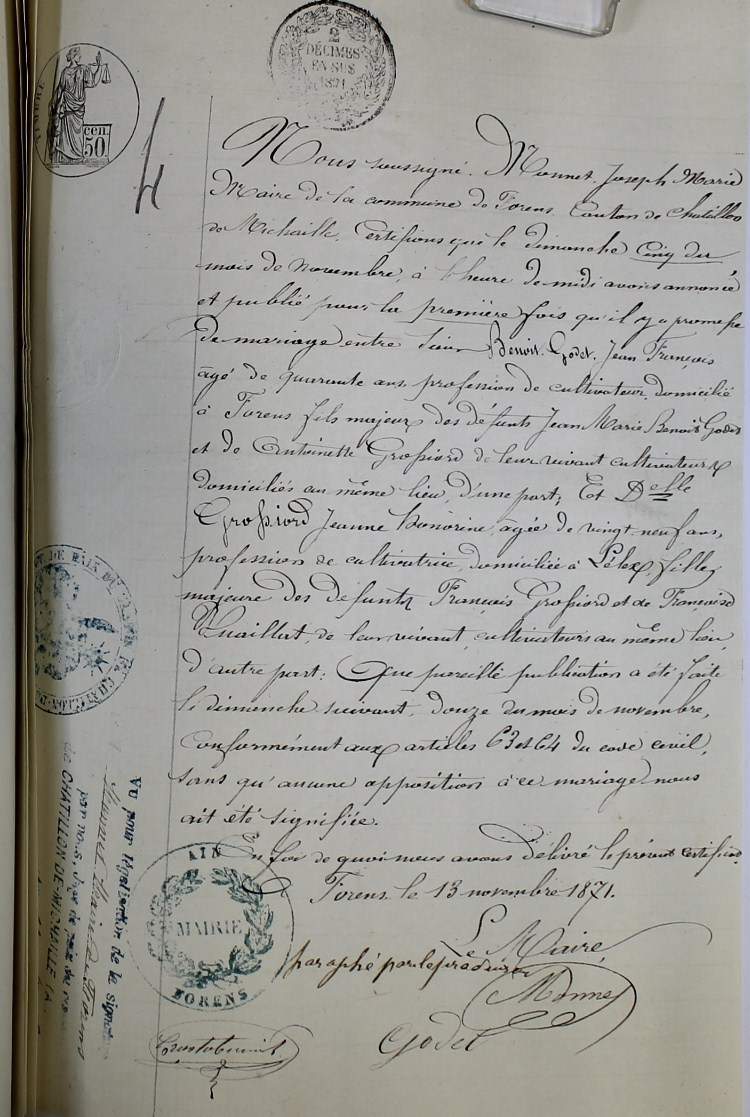 2
DÉCIMES
EN SUS
1871
TIMBRE
cen.
50
Nous soussigné. Monnet Joseph Marie
Maire de la commune de Forens Canton de Chatillon
de Michaille, Certifions que le dimanche Cinq du
mois de novembre, à heure de midi avons annoncé
et publié pour la première fois qu'il y a promesse
de mariage entre Benoit-Godet Jean François
âgé de quarante ans profession de cultivateur domicilié
à Forens fils majeur des défunts Jean Marie Benoit Godet
et de Antoinette Grossiord de leur vivant cultivateurs
domiciliés au même lieu, d'une part; Et Delle
Grossiord Jeanne Honorine, agée de vingt neuf ans,
profession de cultivatrice, domiciliée à Lélex fille
majeure des défunts François Grossiord et de Françoise
de leur vivant, cultivateurs au même lieu,
d'autre part; Que pareille publication a été faite
le dimanche suivant, douze du mois de novembre,
Conformément aux articles 63 et 64 du code civil,
sans qu'aucune opposition à ce mariage nous
ait été signifiée.
En foi de quoi nous avons délivré le présent certificat
Forens le 13 novembre 1871.
Le Maire,
paraphé par le procureur
Monnet
Godet
AIN
MAIRIE
FORENS
Vu pour légalisation de la sign
Monnet Maire de Forens
par nous, juge de paix de
de CHATILLON-DE-MICHAILLE (A